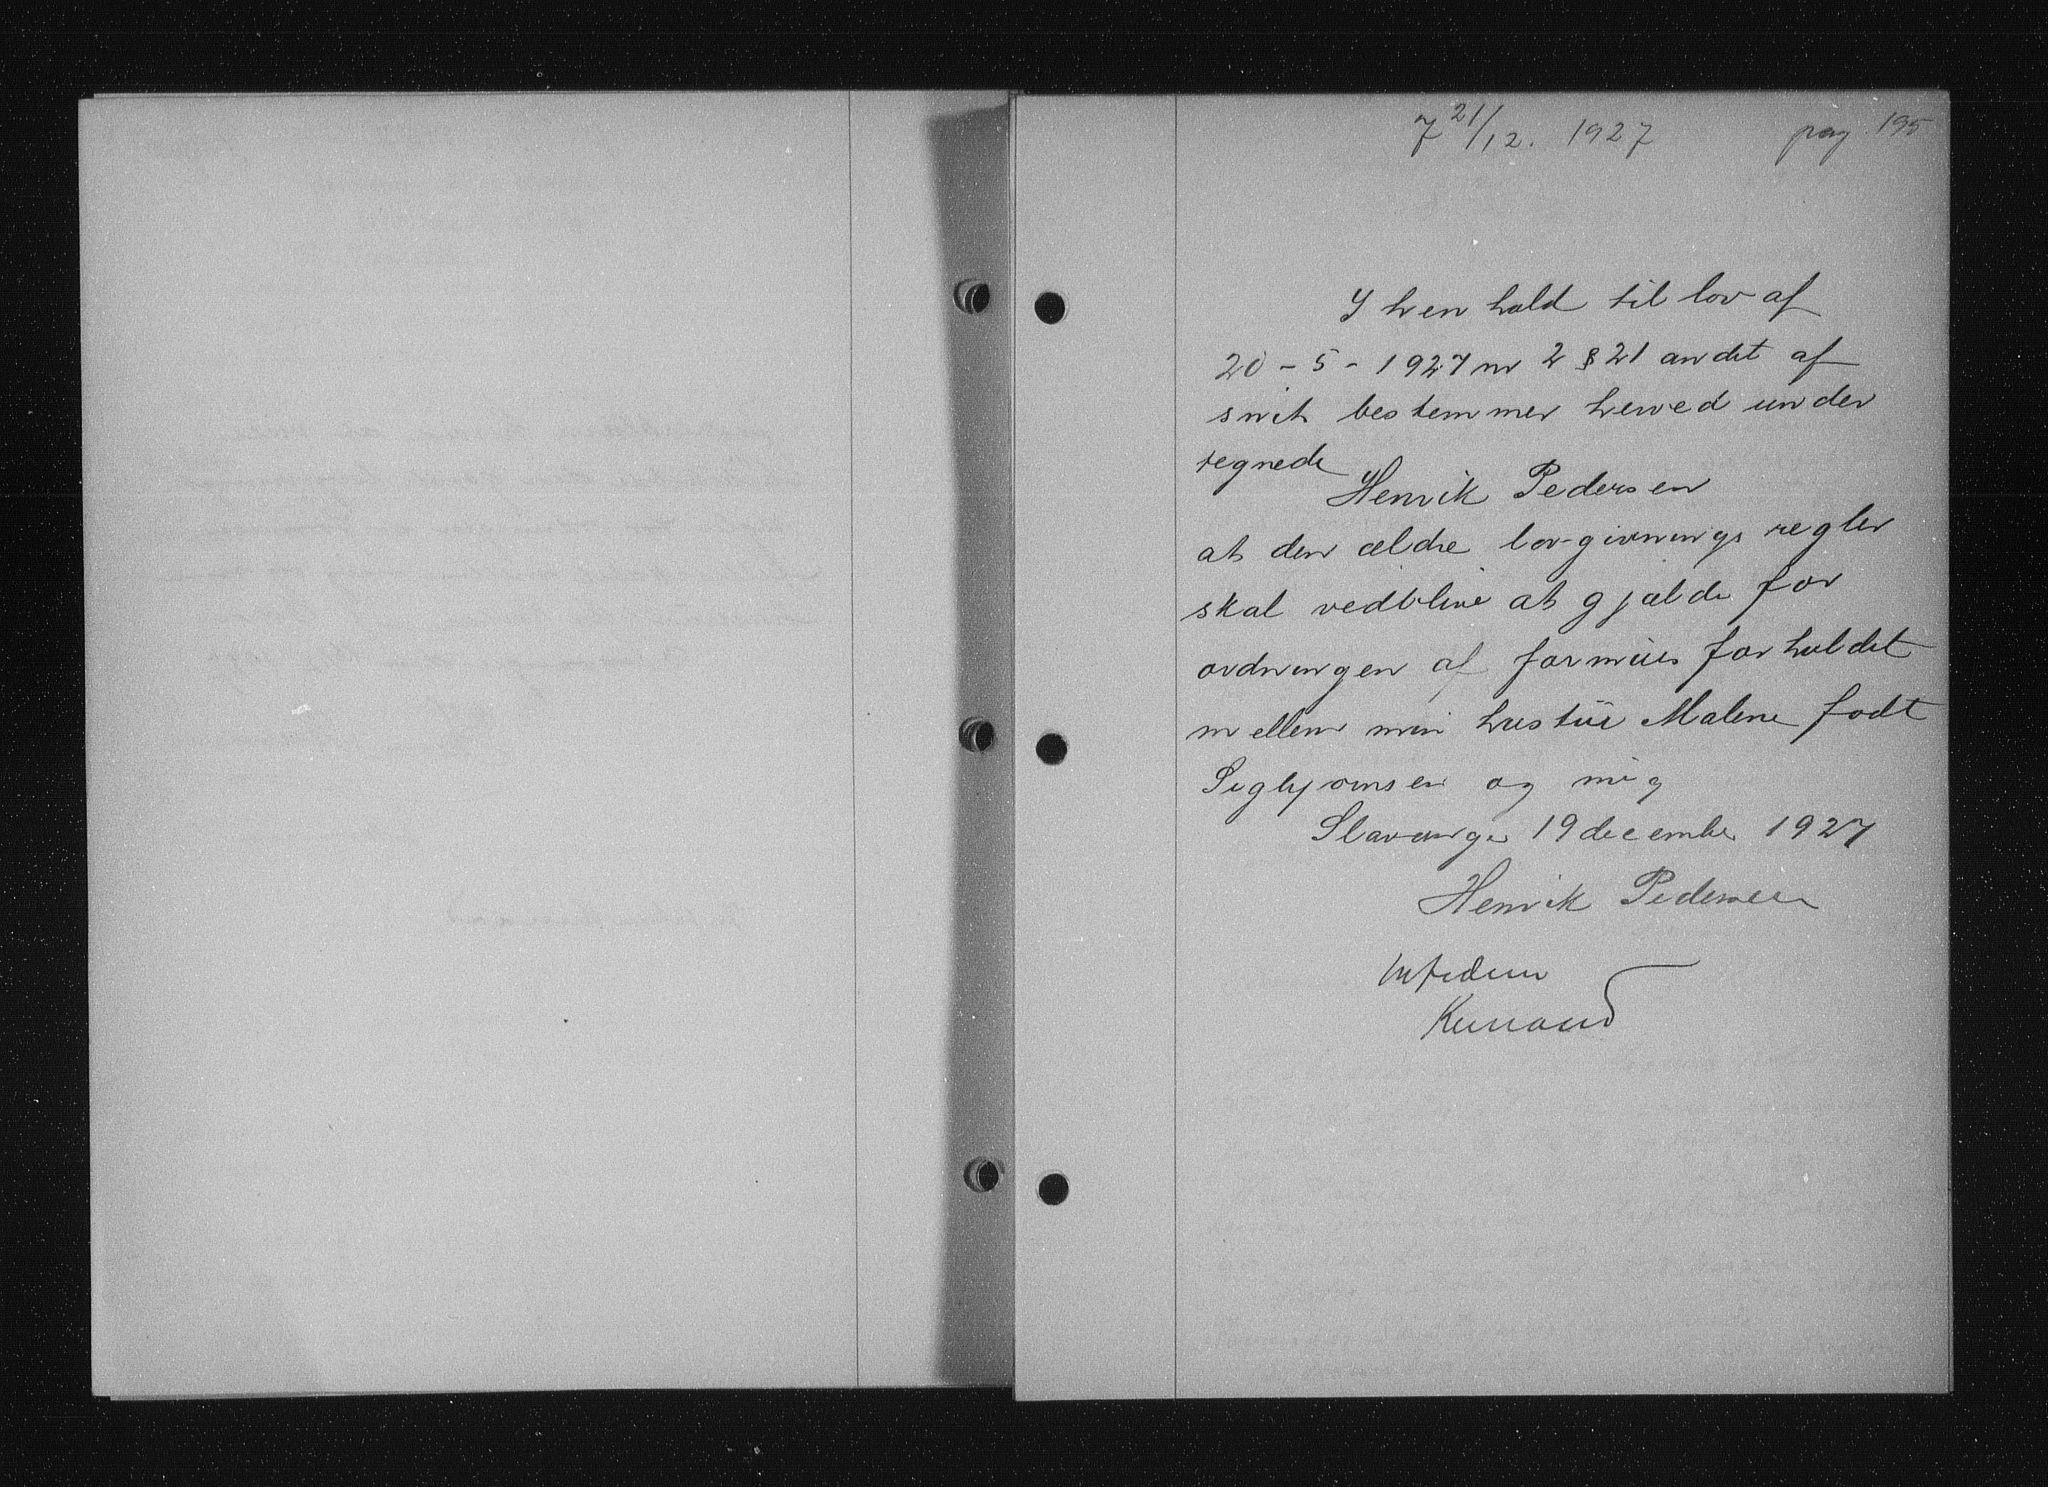 7 21/12. 1927 pag 195
I hen hold til lov af
20 - 5 - 1927 nr 2 § 21 andet af
snit bestemmer herved under
tegnede
Henrik Pedersen
at den ældre lov-givnings regler
skal vedblive at gjælde for
ordningen af formues forholdet
mellem min hustru Malene født
og mig
Stavanger 19 december 1927
Henrik Pedersen